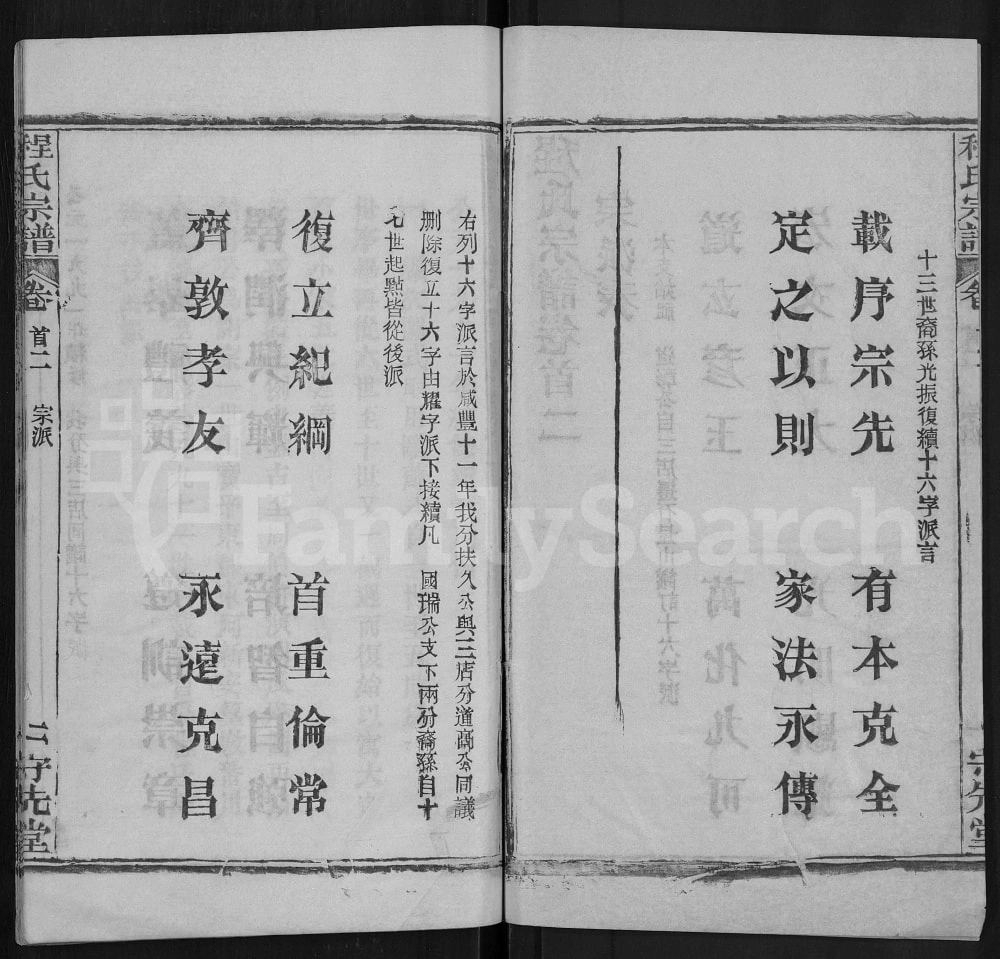 程氏宗譜 卷
十三世裔孫光振復續十六字派言
載序宗先 有本克全
定之以則 家法永傳
守先堂
右列十六字派言於咸豐十一年我分扶久公與三店分道喬公同議
刪除復立十六字由耀字派下接續凡 國瑞公支下兩分裔孫自十
七世起點皆從後派
復立紀綱 首重倫常
齊敦孝友 永遠克昌
程氏宗譜 卷 首二 宗派 二 守先堂
FamilySearch